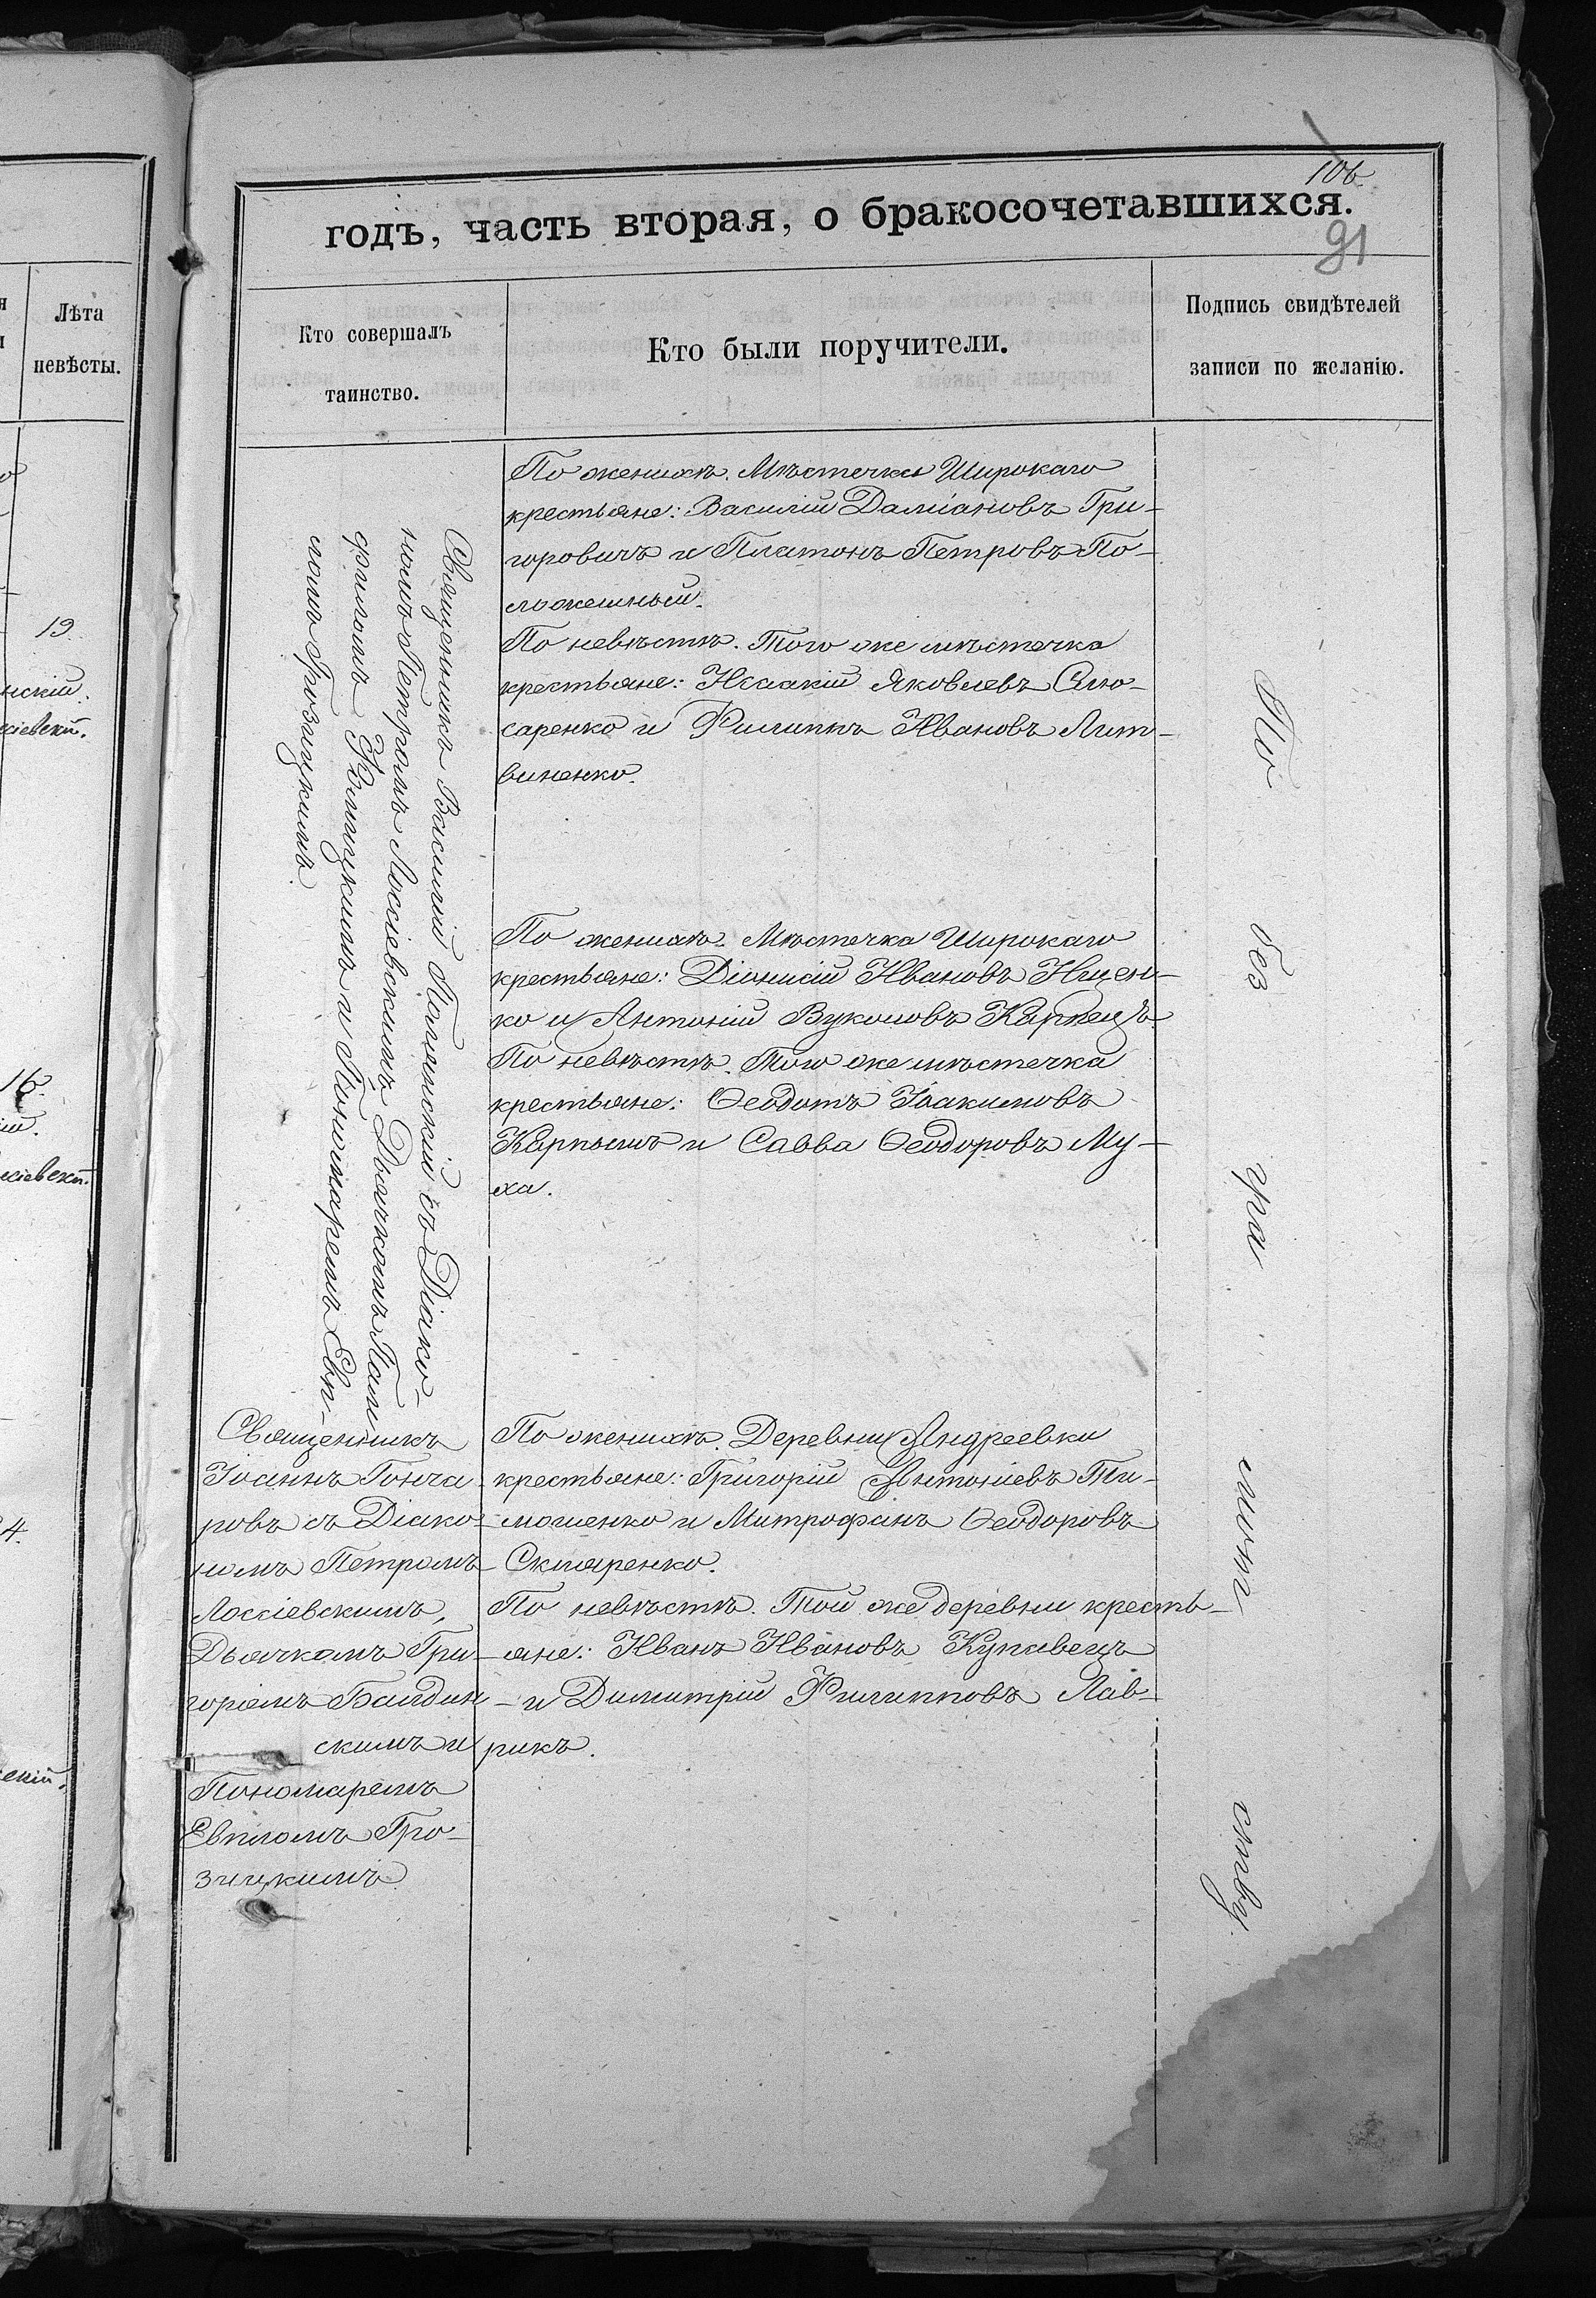 106
годъ, часть вторая, о бракосочетавшихся.
91
Лѣта
невѣсты.
19
нскій.
16.
4.
Кто совершалъ
таинство.
Кто были поручители.
Подпись свидѣтелей
записи по желанію.
Священникъ Василій съ Діако-
номъ Петромъ Лоссіевскимъ, Дьячкомъ Пам-
филомъ и Пономаремъ Евп-
ломъ Грозицкимъ.
По женихѣ. Мѣстечка Широкаго
крестьяне: Василій Даміановъ Гри-
горовичъ и Платонъ Петровъ По-
ложешный.
По невѣстѣ. Того же мѣстечка
крестьяне: Исаакій Яковлевъ Слю-
саренко и Филиппъ Ивановъ Лит-
виненко.
По женихѣ. Мѣстечка Широкаго
крестьяне: Діонисій Ивановъ Ищен-
ко и Антоній Вуколовъ Карпецъ
По невѣстѣ. Того же мѣстечка
крестьяне: Ѳеодотъ Іоакимовъ
и Савва Ѳеодоровъ Му-
ха.
Священникъ
Іоаннъ Гонча
ровъ съ Діако-
номъ Петромъ
Лоссіевскимъ,
Дьячкомъ Гри-
горіемъ Балдин
скимъ и
Пономаремъ
Евпломъ Гро-
зицкимъ
По женихѣ. Деревни Андреевки
крестьяне: Григорій Антоніевъ Ти-
мошенко и Митрофанъ Ѳеодоровъ
Скляренко.
По невѣстѣ. Той же деревни кресть-
яне: Иванъ Ивановъ Купавецъ
и Димитрій Филипповъ Лав-
рикъ.
По без гра мотн ству